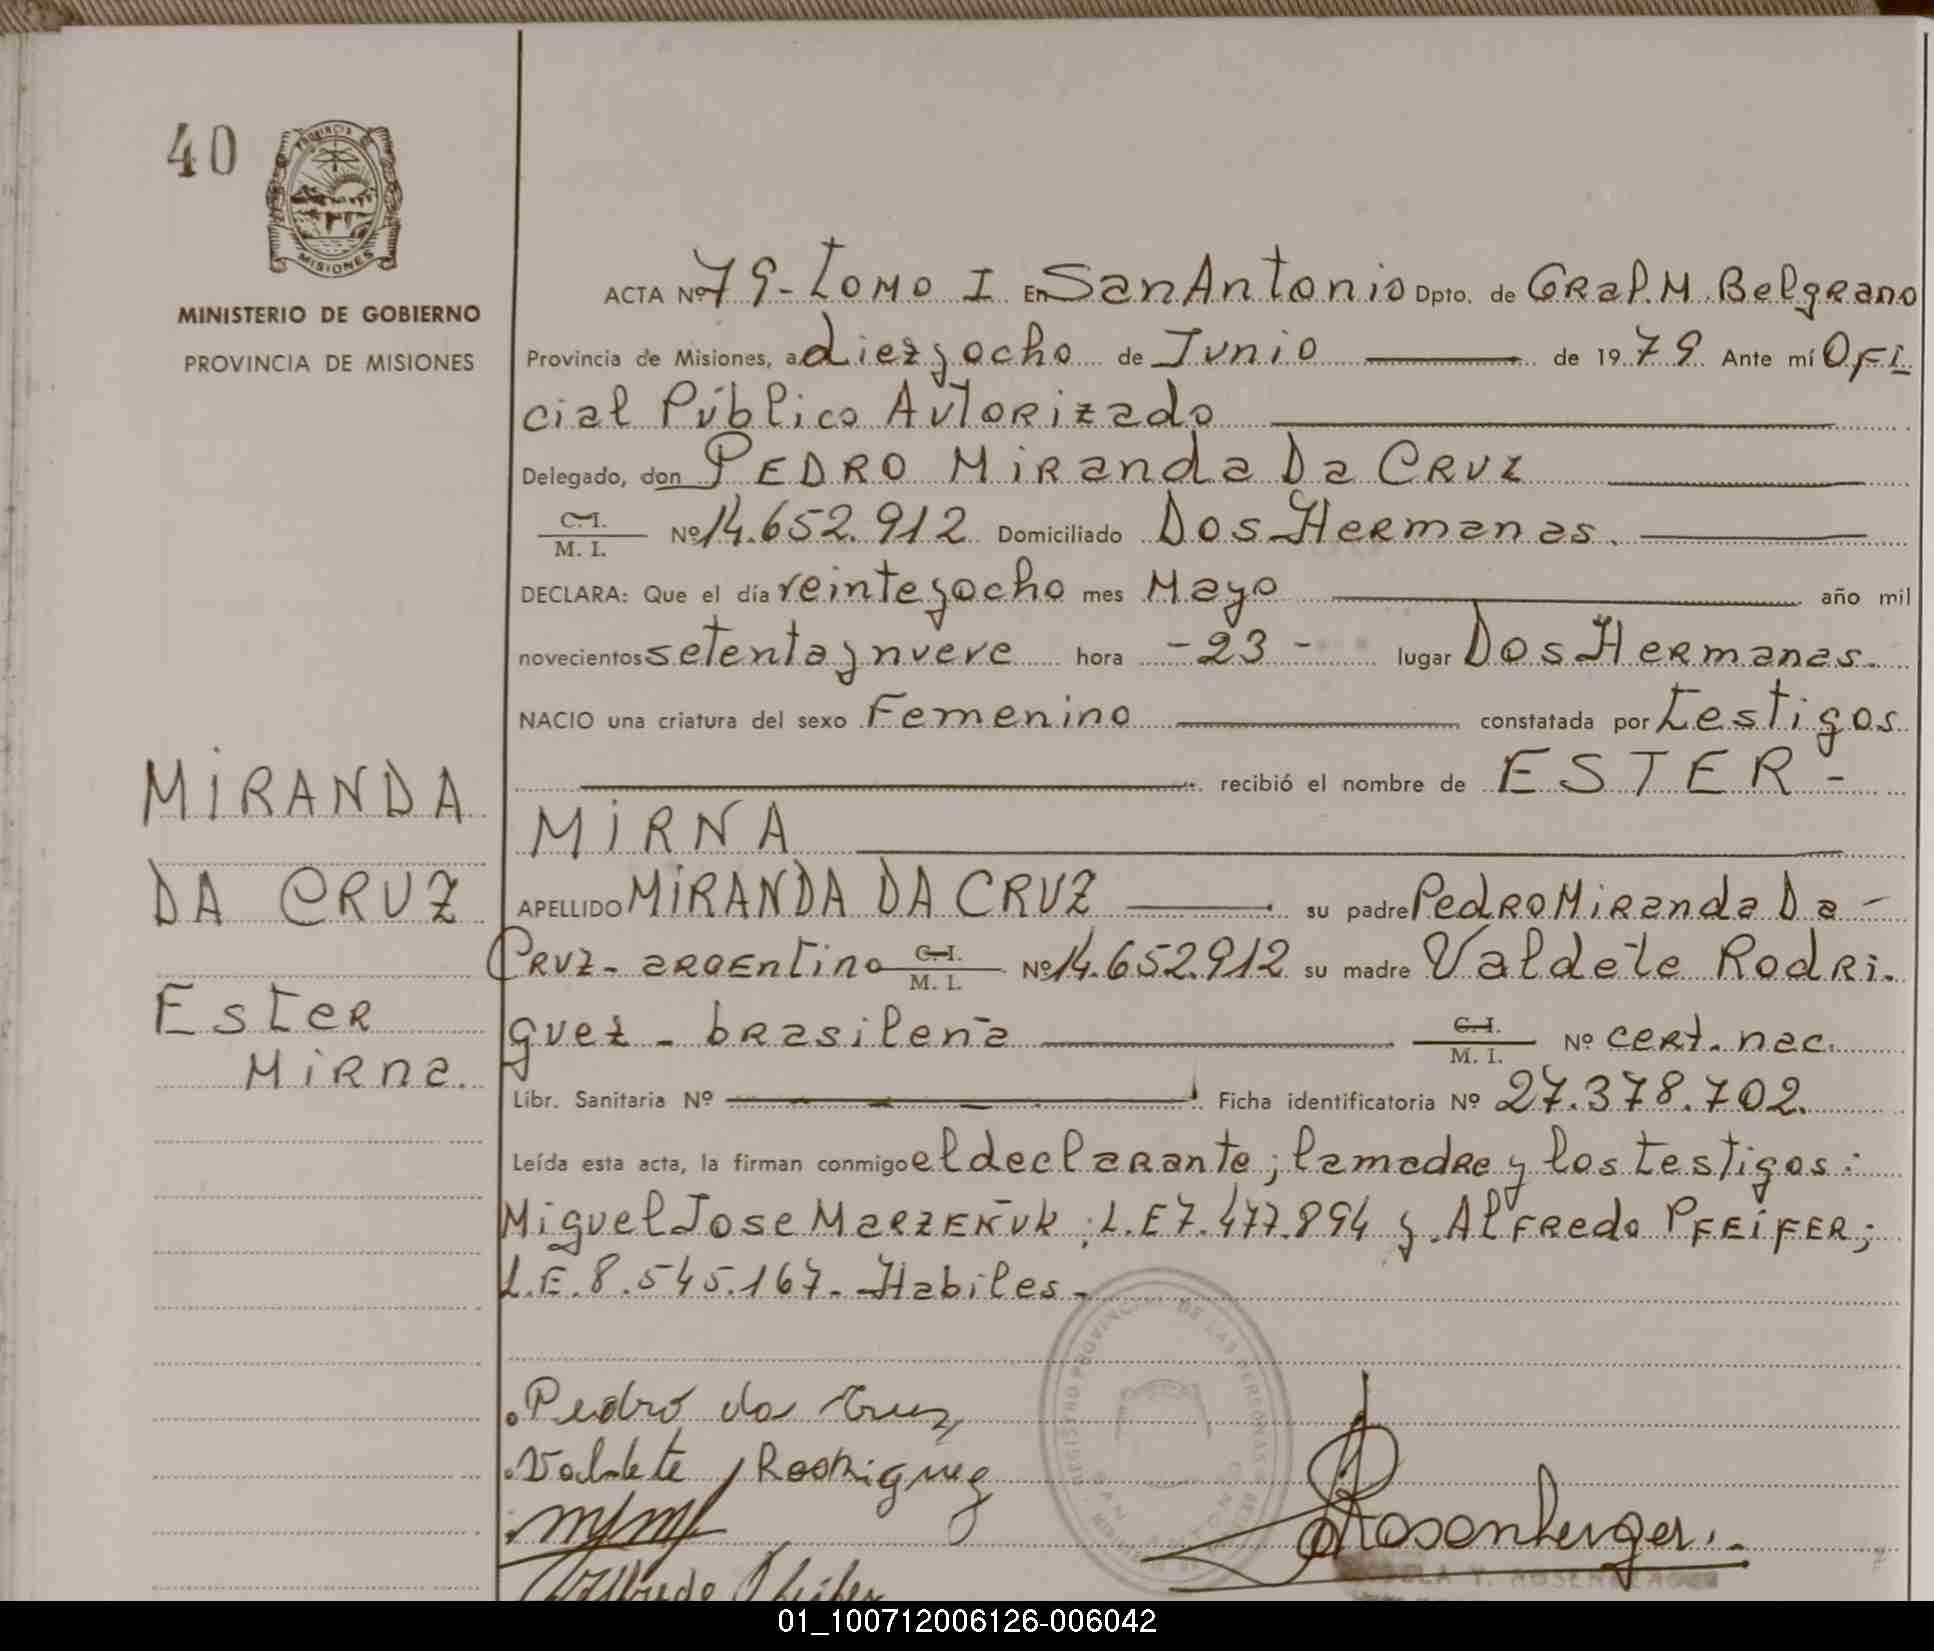 40
PROVINCIA
MISIONES
MINISTERIO DE GOBIERNO
PROVINCIA DE MISIONES
ACTA Nº 79-Tomo I En San Antonio Dpto. de GRal. M. BelgRano
Provincia de Misiones, a diez y ocho de Junio de 19 79 Ante mí Ofi
cial Público Autorizado
Delegado, don PEDRO MiRanda Da CRUZ
C.I.
M. I. Nº 14.652.912 Domiciliado Dos Hermanas.
DECLARA: Que el día veinte y ocho mes Mayo año mil
novecientos setenta y nueve hora -23- lugar Dos Hermanas.
NACIO una criatura del sexo Femenino constatada por testigos
recibió el nombre de ESTER-
MIRNA
APELLIDO MIRANDA DA CRUZ su padre Pedro Miranda Da-
Cruz- argentino C.I.
M. I. Nº 14.652.912 su madre Valdete Rodri.
guez - brasileña C.I.
M. I. Nº cert. nac.
Libr. Sanitaria Nº Ficha identificatoria Nº 27.378.702.
Leída esta acta, la firman conmigo el declarante; la madre y los testigos:
Miguel Jose MARZEÑUK; L.E 7.477.894 y Alfredo PFEIFER;
L.E. 8.545.167.- Habiles.-
MIRANDA
DA CRUZ
Ester
Mirna.
Pedro da Cruz
Valdete Rodriguez
Alfredo Pfeifer
Rosenberger.
REGISTRO PROVINCIAL DE LAS PERSONAS
SAN ANTONIO
01_100712006126-006042